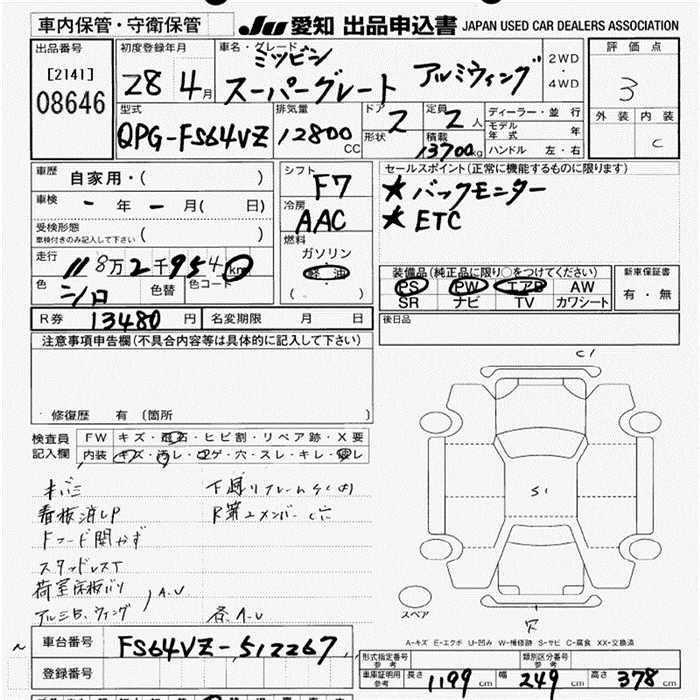 車内保管・守衛保管
JU 愛知 出品申込書 JAPAN USED CAR DEALERS ASSOCIATION
出品番号
[2141]
08646
初度登録年月
28 4月
車名・グレード
ミツビシ
スーパーグレート アルミウィング
2WD
・
4WD
評価点
3
外装 内装
C
型式
QPG-FS64VZ
排気量
12800 CC
ドア 2
形状
定員 2 人
積載 13700 kg
ディーラー・並行
モデル年式 年
ハンドル 左・右
車歴 自家用・( )
車検 - 年 - 月( 日)
受検形態
車検付きのみ記入して下さい ( )
走行 118万2千954 km
色 シロ 色替 色コード
シフト F7
冷房 AAC
燃料
ガソリン
軽油
( ・ )
セールスポイント(正常に機能するものに限ります)
★バックモニター
★ETC
装備品(純正品に限り○をつけてください)
PS PW エアB AW
SR ナビ TV カワシート
新車保証書
有・無
R券 13480 円 名変期限 月 日
後日品
注意事項申告欄(不具合内容等は具体的に記入して下さい)
修復歴 有 (箇所 )
検査員
記入欄
FW キズ・飛石・ヒビ割・リペア跡・X要
内装 キズ・汚レ・コゲ・穴・スレ・キレ
キバミ
看板済LP
Fフード開かず
スタッドレスT
荷室床板バリ
アルミB.ウィング A.U
下廻りフレーム
R第2メンバー
各A-U
C1
S1
穴
スペア
A-キズ E-エクボ U-凹み W-補修跡 S-サビ C-腐食 XX-交換済
車台番号 FS64VZ-512267
登録番号
形式指定番号
参考
類別区分番号
参考
車庫証明用
参考
長さ 1199 cm 幅 249 cm 高さ 378 cm